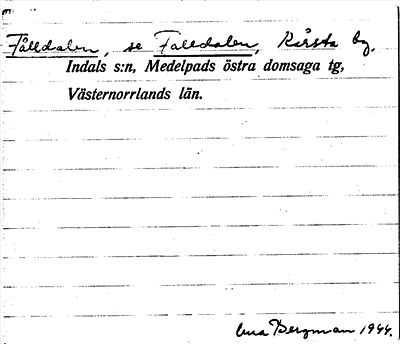 Fålldalen, se Falldalen, Kårsta by,
Indals s:n, Medelpads östra domsaga tg,
Västernorrlands län.
Bergman 1944.